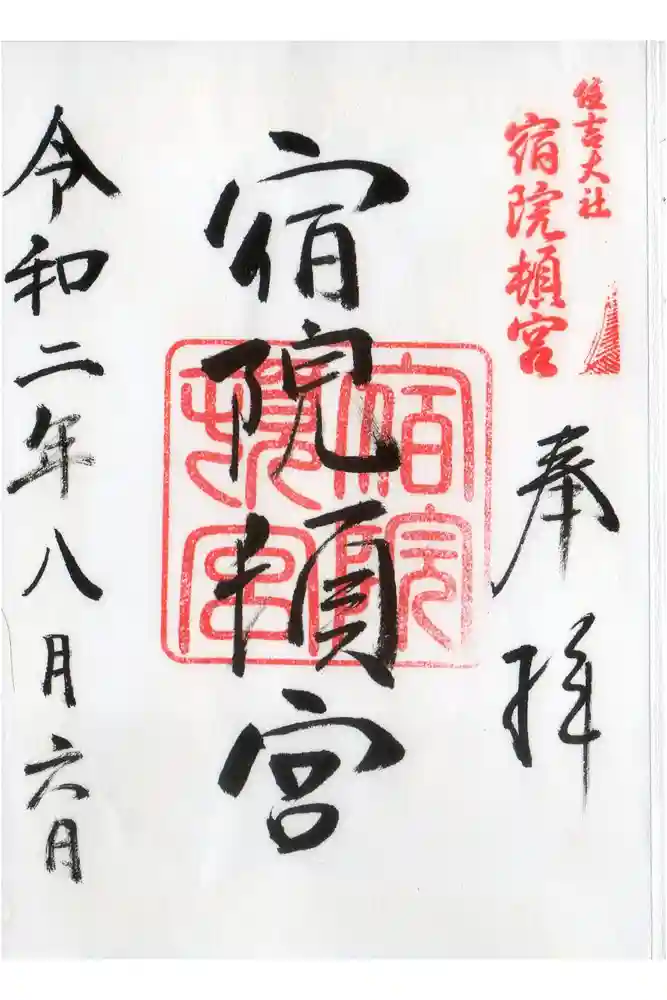 住吉大社
宿院頓宮
奉拝
宿院頓宮
宿院頓宮
令和二年八月六日